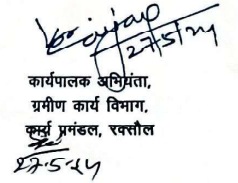 27/5/24
कार्यपालक अभियंता,
ग्रमीण कार्य विभाग,
कार्य प्रमंडल, रक्सौल
27.5.24